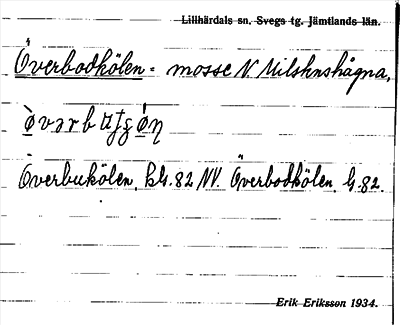 Lillhärdals sn. Svegs tg. Jämtlands län.
Överbodkölen = mosse N.
Överbukölen, kls. 82 NV. Överbodkölen, G. 82.
Erik Eriksson 1934.